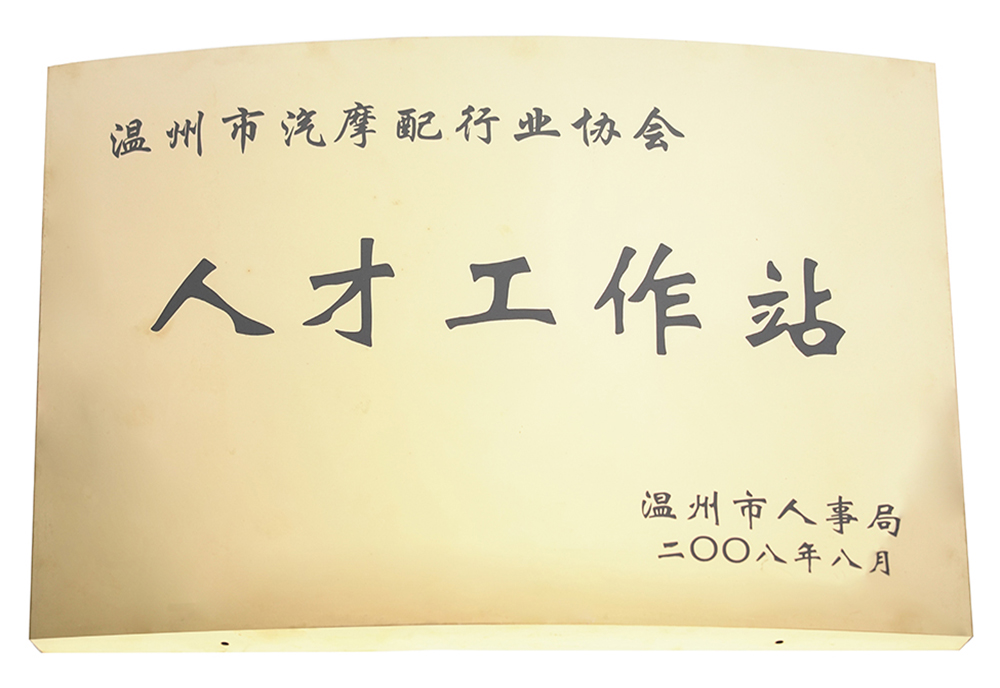 温州市汽摩配行业协会
人才工作站
温州市人事局
二〇〇八年八月